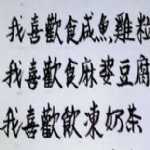 我喜歡食咸魚雞粒
我喜歡食麻婆豆腐
我喜歡飲凍奶茶